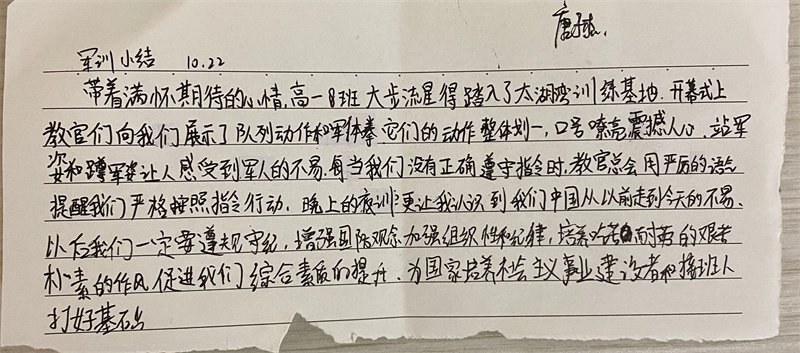 唐
军训小结 10.22
带着满怀期待的心情,高一8班大步流星得踏入了太湖湾训练基地.开幕式上
教官们向我们展示了队列动作和军体拳它们的动作整体划一,口号嘹亮震撼人心.站军
姿和蹲军姿让人感受到军人的不易.每当我们没有正确遵守指令时,教官总会用严厉的语气
提醒我们严格按照指令行动.晚上的夜训更让我认识到我们中国从以前走到今天的不易、
以后我们一定要遵规守纪,增强团队观念加强组织性和纪律,培养吃苦耐劳的艰苦
朴素的作风促进我们综合素质的提升、为国家培养社会主义事业建设者和接班人
打好基础